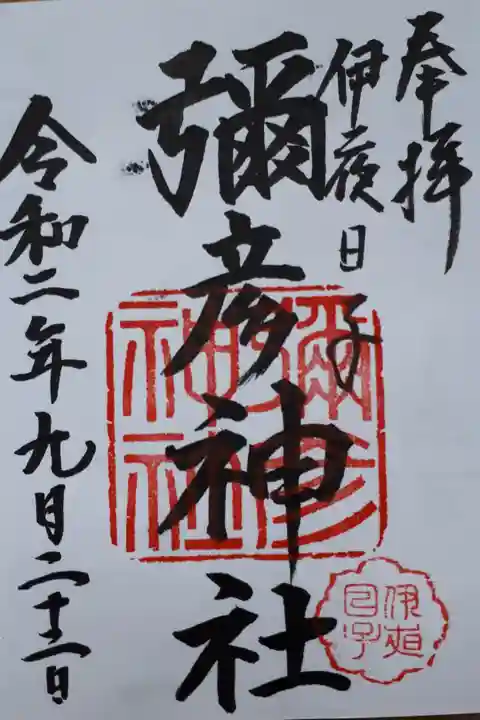 奉拝
伊夜日子
彌彦神社
令和二年九月二十二日
彌彦
神社
伊夜
日子